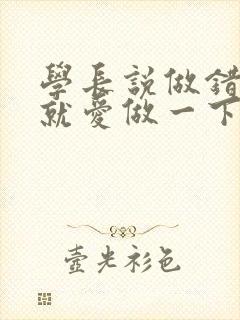 學長說做錯
就愛做一下
壺光衫色